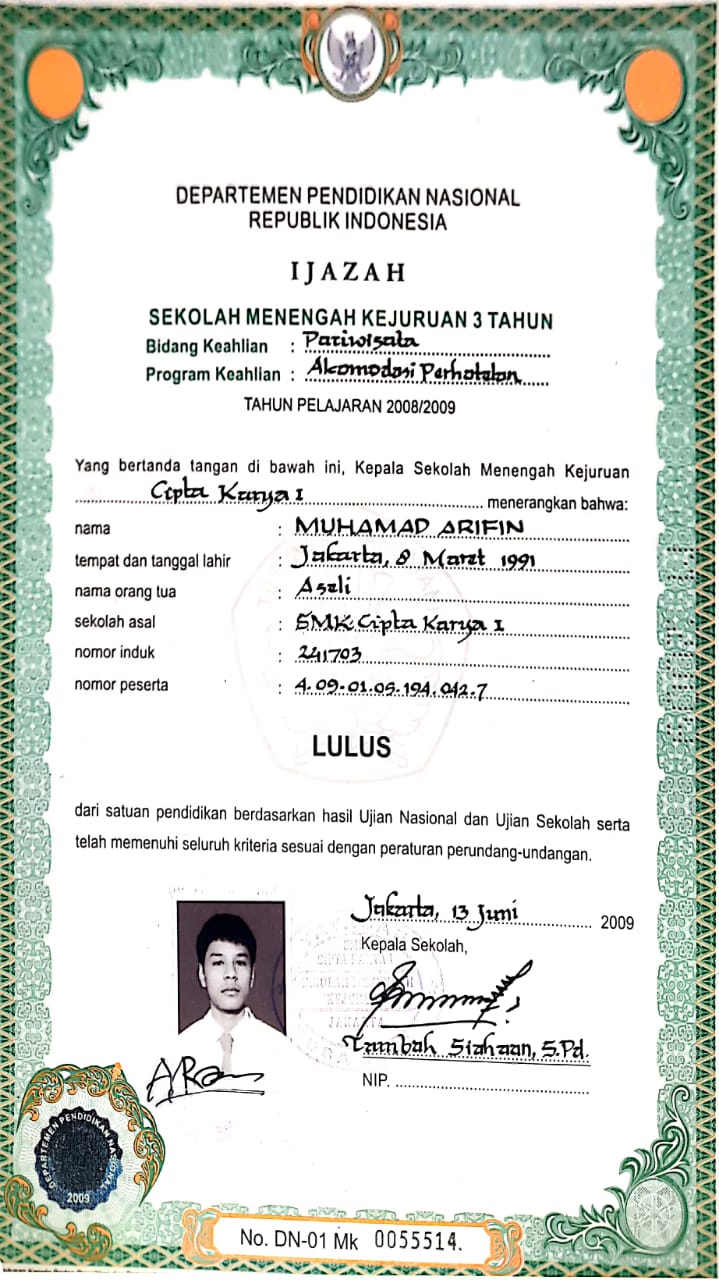 DEPARTEMEN PENDIDIKAN NASIONAL
REPUBLIK INDONESIA
IJAZAH
SEKOLAH MENENGAH KEJURUAN 3 TAHUN
Bidang Keahlian : Pariwisata
Program Keahlian : Akomodasi Perhotelan
TAHUN PELAJARAN 2008/2009
Yang bertanda tangan di bawah ini, Kepala Sekolah Menengah Kejuruan
Cipta Karya I menerangkan bahwa:
nama : MUHAMAD ARIFIN
tempat dan tanggal lahir : Jakarta, 8 Maret 1991
nama orang tua : Aseli
sekolah asal : SMK Cipta Karya I
nomor induk : 241703
nomor peserta : 4.09-01.05.194.042.7
LULUS
dari satuan pendidikan berdasarkan hasil Ujian Nasional dan Ujian Sekolah serta
telah memenuhi seluruh kriteria sesuai dengan peraturan perundang-undangan.
Jakarta, 13 Juni 2009
Kepala Sekolah,
JAKARTA
Tambah Siahaan, S.Pd.
NIP.
DEPARTEMEN PENDIDIKAN NASIONAL
2009
No. DN-01 Mk 0055514.